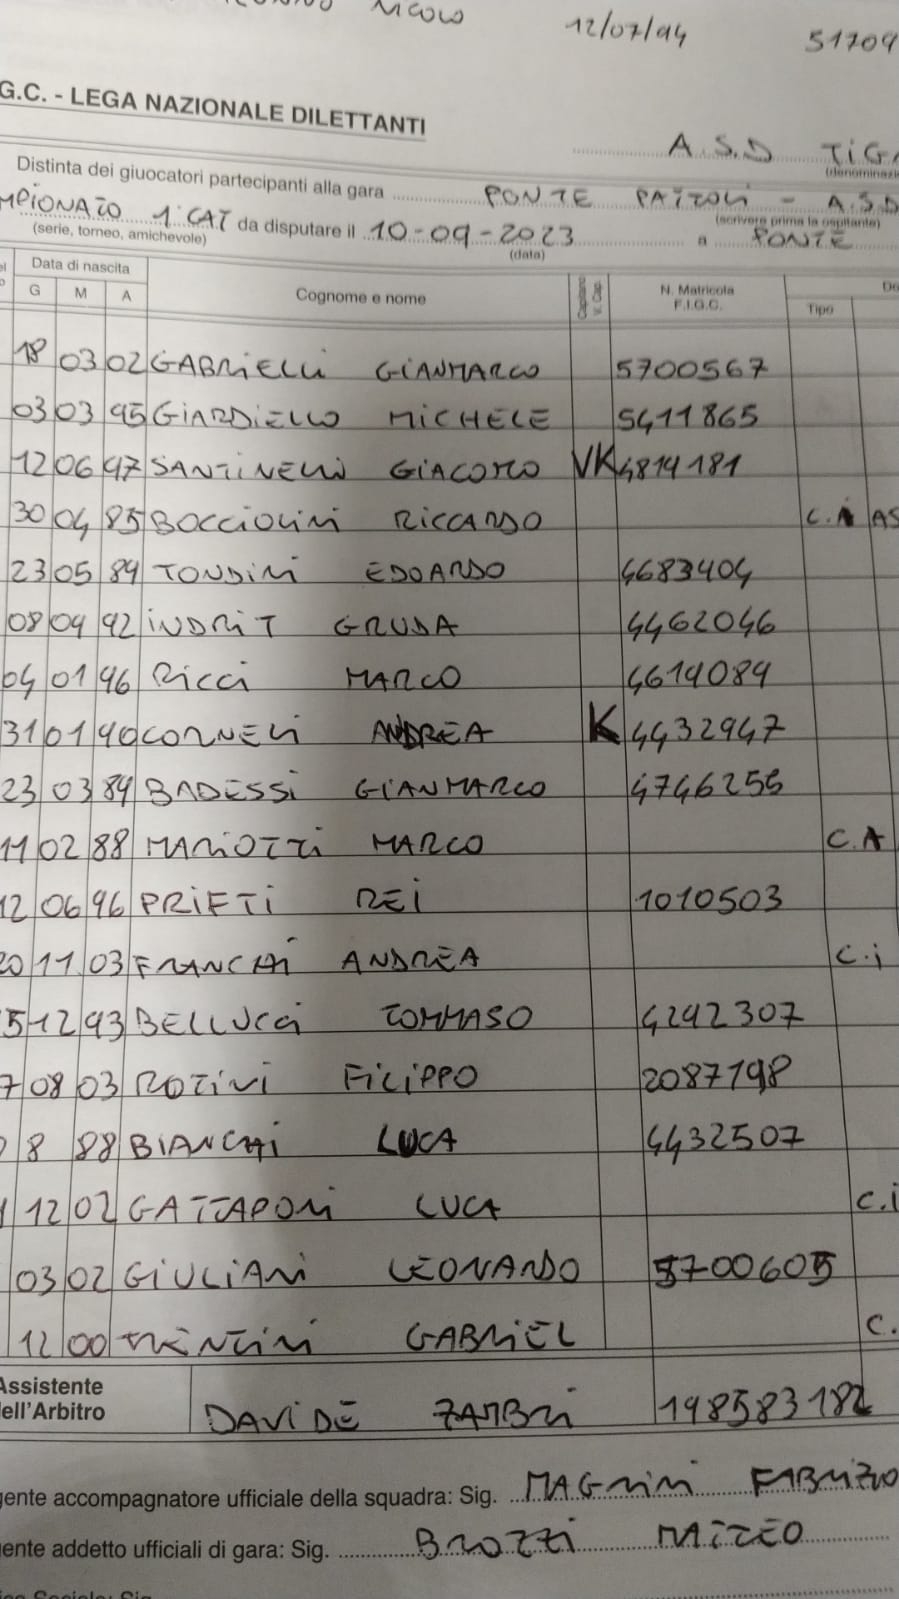 NICOLO 12/07/94 51709
G.C. - LEGA NAZIONALE DILETTANTI
A.S.D TIG
Distinta dei giuocatori partecipanti alla gara PONTE PATTOLI - A.S.D
MPIONATO 1ª CAT da disputare il 10-09-2023 a PONTE
(serie, torneo, amichevole) (data) (scrivere prima la ospitante)
Data di nascita Cognome e nome Capitano V. Cap. N. Matricola F.I.G.C.
G M A Tipo
18 03 02 GABRIELLI GIANMARCO 5700567
03 03 95 GIARDIELLO MICHELE 5411865
12 06 97 SANTINELLI GIACOMO VK 4814181
30 04 85 BOCCIOLINI RICCARDO C.I AS
23 05 89 TONDINI EDOARDO 4683404
08 09 92 INDRIT GRUDA 4462046
04 01 96 RICCI MARCO 4614089
31 01 90 CORNELI ANDREA K 4432947
23 03 89 BADESSI GIANMARCO 4746255
11 02 88 MARIOTTI MARCO C.A
12 06 96 PRIFTI REI 1010503
20 11 03 FRANCHI ANDREA C.i
5 12 93 BELLUCCI TOMMASO 4242307
7 08 03 ROTINI FILIPPO 2087198
8 88 BIANCHI LUCA 4432507
12 02 GATTAPONI LUCA C.i
03 02 GIULIANI LEONARDO 5700605
12 00 TRENTINI GABRIEL C.
Assistente
ell'Arbitro DAVIDE ZAMBRI 198583182
gente accompagnatore ufficiale della squadra: Sig. MAGNINI FABRIZIO
ente addetto ufficiali di gara: Sig. BROZZI MIRCO